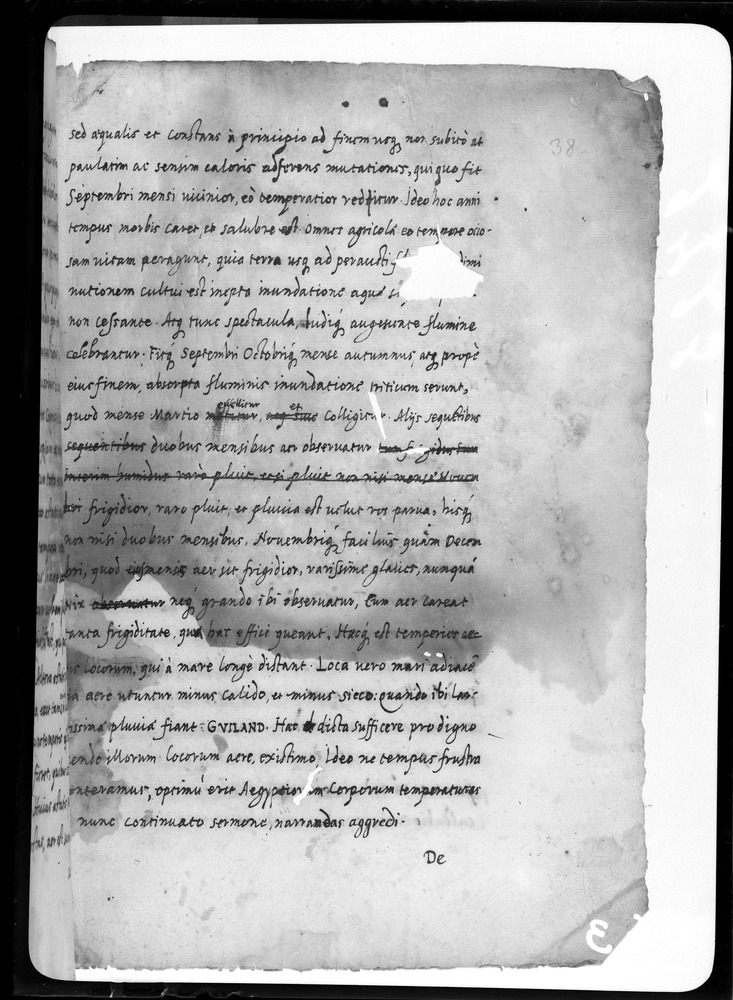 38
sed aequalis et constans à principio ad finem usq̃, non subitò at
paulatim ac sensim caloris adferens mutationes, qui quo fit
Septembri mensi vicinior, eò temperatior redditur. Ideo hoc anni
tempus morbis caret, et salubre est. Omnes agricolę eo tempore ocio-
sam vitam peragunt, quia terra usq̃ ad perausti dimi
nutionem cultui est inepta inundatione aquę
non cessante. Atq̃ tunc spectacula, ludiq̃ augescente flumine
celebrantur. Fitq̃ Septembri Octobriq̃ mense autumnus, atq̃ propè
eius finem, absorpta fluminis inundatione triticum serunt,
quod mense Martio metitur, atq̃ sine et colligitur. Alijs sequẽtibus
sequentibus duobus mensibus aer observatur
interim humidus raro pluit, etsi pluit non nisi mense Novem
bri frigidior, raro pluit, et pluvia est velut ros parva, hisq̃
non nisi duobus mensibus, Novembriq̃ faciliùs quàm Decem
bri, quod eius mensis aer sit frigidior, rarissime glacies, nunquã
nix observatur neq̃ grando ibi observatur, Cum aer careat
tanta frigiditate, qua hac effici queant. Hęcq̃ est temperies ae-
ris locorum, qui à mare longè distant. Loca vero mari adiacẽ
tia aere utuntur minus calido, et minus sicco: quando ibi lar-
gissimę pluvię fiant. GVILAND. Hęc dicta sufficere pro digno
scendo illorum locorum aere, existimo, Ideo ne tempus frustra
conteramus, optimũ erit Aegyptiorum corporum temperaturas
nunc continuato sermone, narrandas aggredi.
De